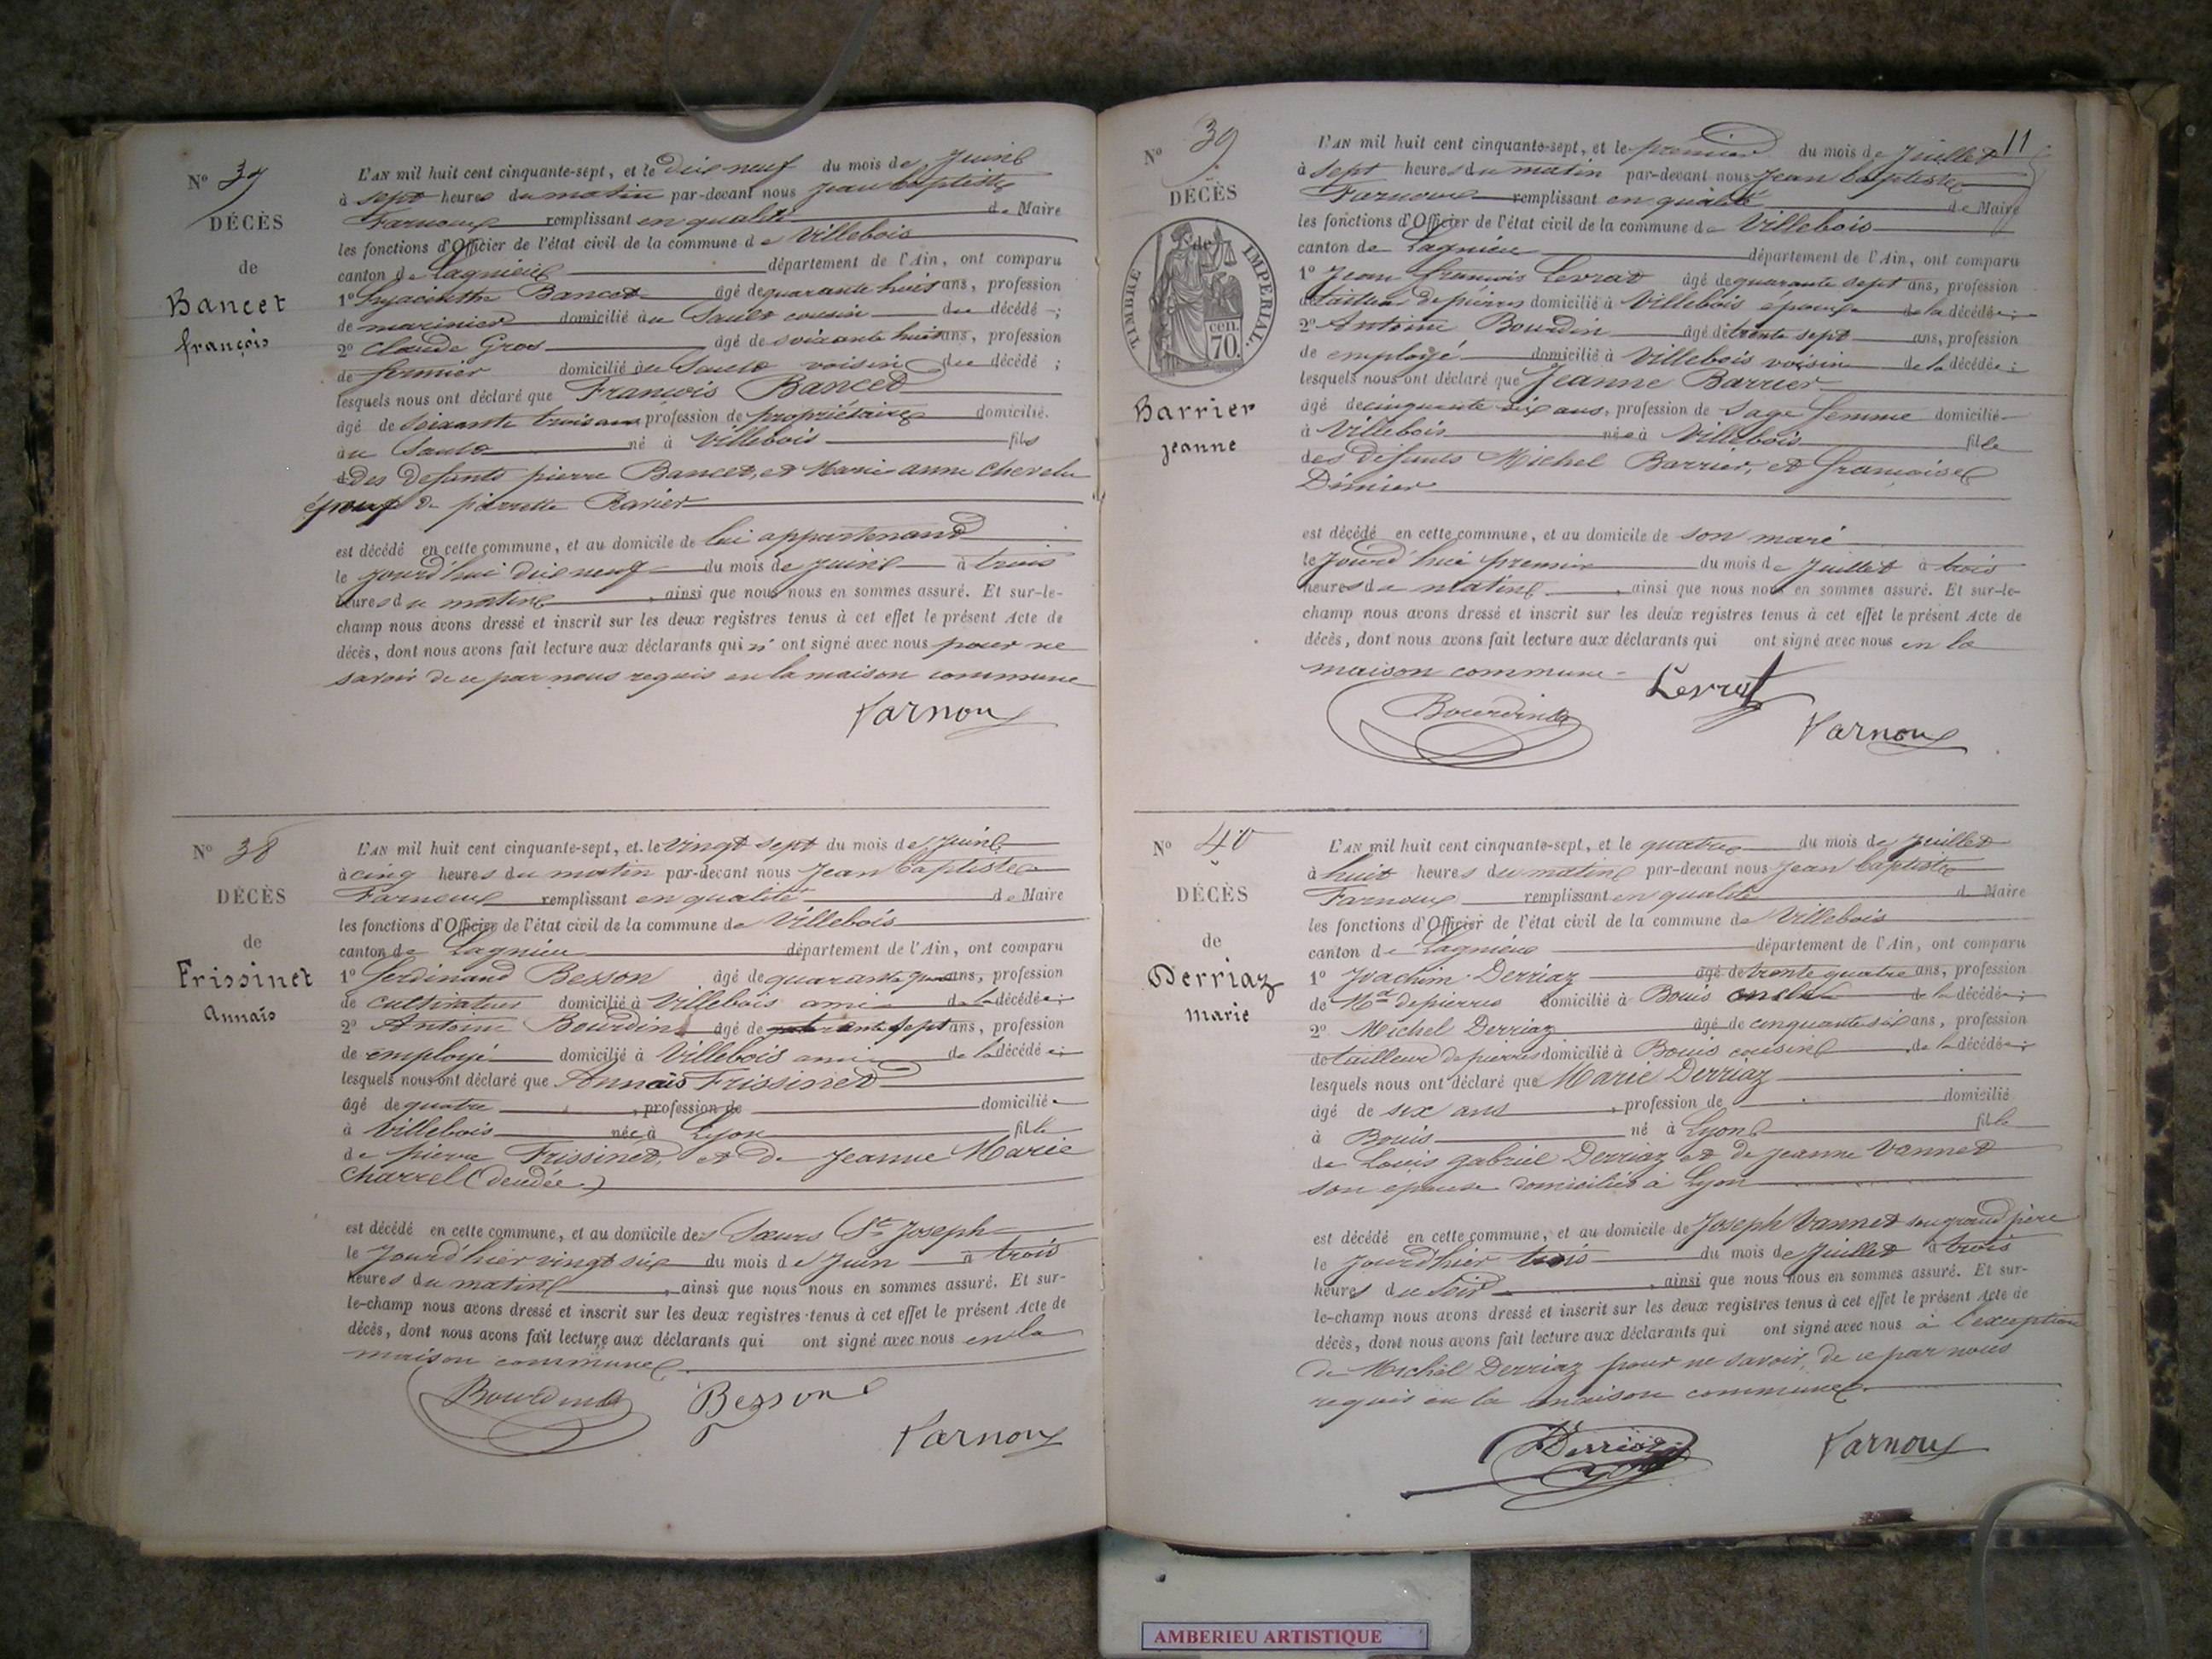 Nº 37
DÉCÈS
de
Bancet
françois
L'AN mil huit cent cinquante-sept, et le dix neuf du mois de Juin
à sept heures du matin par-devant nous Jean baptiste
Farnoux remplissant en qualité de Maire
les fonctions d'Officier de l'état civil de la commune de Villebois
canton de Lagnieu département de l'Ain, ont comparu
1º hyacinthe Bancet âgé de quarante huit ans, profession
de marinier domicilié au Sault cousin du décédé ;
2º Claude Gros âgé de soixante huit ans, profession
de fermier domicilié au Sault voisin du décédé ;
lesquels nous ont déclaré que François Bancet
âgé de soixante trois ans profession de propriétaire domicilié
au Sault né à Villebois fils
des défunts pierre Bancet, et Marie anne chevelu
époux de pierrette Ravier
est décédé en cette commune, et au domicile de lui appartenant
le jourd'hui dix neuf du mois de Juin à trois
heures du matin, ainsi que nous nous en sommes assuré. Et sur-le-
champ nous avons dressé et inscrit sur les deux registres tenus à cet effet le présent Acte de
décès, dont nous avons fait lecture aux déclarants qui n' ont signé avec nous pour ne
savoir de ce par nous requis en la maison commune
Farnoux
Nº 38
DÉCÈS
de
Frissinet
Annaïs
L'AN mil huit cent cinquante-sept, et le vingt sept du mois de Juin
à cinq heures du matin par-devant nous Jean baptiste
Farnoux remplissant en qualité de Maire
les fonctions d'Officier de l'état civil de la commune de Villebois
canton de Lagnieu département de l'Ain, ont comparu
1º ferdinand Besson âgé de quarante ans, profession
de cultivateur domicilié à Villebois ami de la décédée ;
2º Antoine Bourdin âgé de sept ans, profession
de employé domicilié à Villebois ami de la décédée ;
lesquels nous ont déclaré que Annaïs Frissinet
âgé de quatre , profession de domicilié
à Villebois née à Lyon fille
de pierre Frissinet, et de Jeanne Marie
Charrel (décédée)
est décédé en cette commune, et au domicile des Sœurs St Joseph
le jourd'hier vingt six du mois de Juin à trois
heures du matin, ainsi que nous nous en sommes assuré. Et sur-
le-champ nous avons dressé et inscrit sur les deux registres tenus à cet effet le présent Acte de
décès, dont nous avons fait lecture aux déclarants qui ont signé avec nous en la
maison commune.
Bourdin Besson
Farnoux
11
Nº 39
DÉCÈS
de
TIMBRE IMPERIAL
cen.
70.
Barrier
jeanne
L'AN mil huit cent cinquante-sept, et le premier du mois de Juillet
à sept heures du matin par-devant nous Jean baptiste
Farnoux remplissant en qualité de Maire
les fonctions d'Officier de l'état civil de la commune de Villebois
canton de Lagnieu département de l'Ain, ont comparu
1º Jean françois Levrat âgé de quarante sept ans, profession
de tailleur de pierres domicilié à Villebois époux de la décédée ;
2º Antoine Bourdin âgé de trente sept ans, profession
de employé domicilié à Villebois voisin de la décédée ;
lesquels nous ont déclaré que Jeanne Barrier
âgé de cinquante six ans, profession de sage femme domicilié
à Villebois née à Villebois fille
des défunts Michel Barrier, et françoise
Dimier
est décédé en cette commune, et au domicile de son mari
le jourd'hui premier du mois de Juillet à trois
heures du matin, ainsi que nous nous en sommes assuré. Et sur-le-
champ nous avons dressé et inscrit sur les deux registres tenus à cet effet le présent Acte de
décès, dont nous avons fait lecture aux déclarants qui ont signé avec nous en la
maison commune
Levrat
Bourdin
Farnoux
Nº 40
DÉCÈS
de
Derriaz
marie
L'AN mil huit cent cinquante-sept, et le quatre du mois de Juillet
à huit heures du matin par-devant nous Jean baptiste
Farnoux remplissant en qualité d Maire
les fonctions d'Officier de l'état civil de la commune de Villebois
canton de Lagnieu département de l'Ain, ont comparu
1º Joachim Derriaz âgé de trente quatre ans, profession
de Md de pierres domicilié à Bouis oncle de la décédée ;
2º Michel Derriaz âgé de cinquante six ans, profession
de tailleur de pierres domicilié à Bouis cousin de la décédée ;
lesquels nous ont déclaré que Marie Derriaz
âgé de six ans , profession de domicilié
à Bouis né à Lyon fille
de Louis gabriel Derriaz et de Jeanne Vannet
son épouse domiciliés à Lyon
est décédé en cette commune, et au domicile de Joseph Vannet son grand père
le jourd'hier trois du mois de Juillet à trois
heures du Soir, ainsi que nous nous en sommes assuré. Et sur-
le-champ nous avons dressé et inscrit sur les deux registres tenus à cet effet le présent Acte de
décès, dont nous avons fait lecture aux déclarants qui ont signé avec nous à l'exception
de Michel Derriaz pour ne savoir, de ce par nous
requis en la maison commune.
Derriaz
Farnoux
AMBERIEU ARTISTIQUE